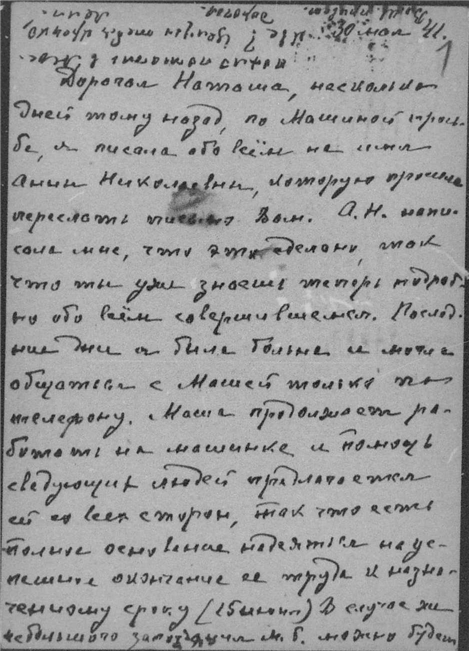 30 мая 41.
1
Дорогая Наташа, несколько
дней тому назад, по Машиной прось-
бе, я писала обо всём на имя
Анны Николаевны, которую просила
переслать письмо Вам. А.Н. напи-
сала мне, что это сделано, так
что ты уже знаешь теперь подроб-
но обо всём совершившемся. Послед-
ние дни я была больна и могла
общаться с Машей только по
телефону. Маша продолжает ра-
ботать на машинке и помощь
сведующих людей предлагается
ей со всех сторон, так что есть
полное основание надеяться на ус-
пешное окончание ее труда к назна-
ченному сроку (15 июня) В случае же
небольшого запоздания м.б. можно будет